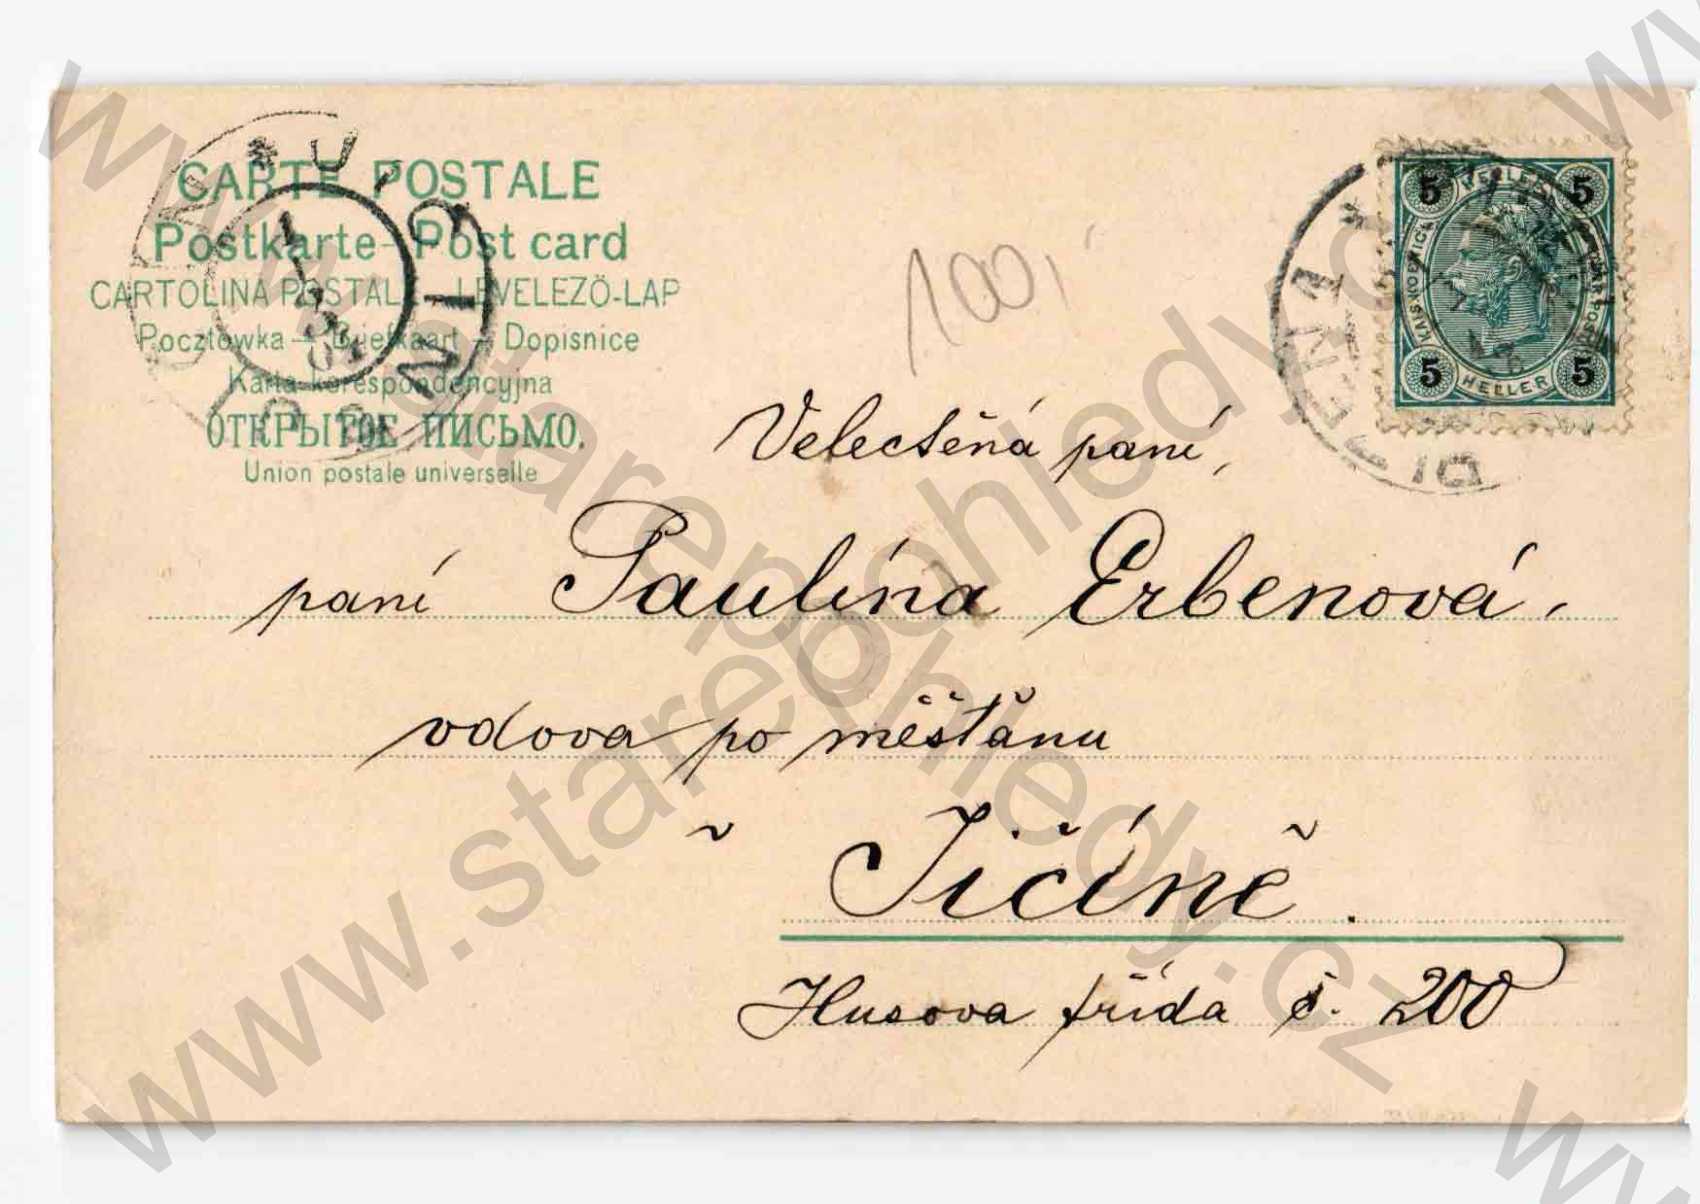 CARTE POSTALE
Postkarte - Post card
CARTOLINA POSTALE - LEVELEZÖ-LAP
Pocztówka - Briefkaart - Dopisnice
Karta korespondencyjna
ОТКРЫТОЕ ПИСЬМО.
Union postale universelle
100,-
5 5
5 HELLER 5
Velectěná paní,
paní Paulína Erbenová,
vdova po měšťanu
v Jičíně.
Husova třída č. 200
www.starepohledy.cz
www.starepohledy.cz